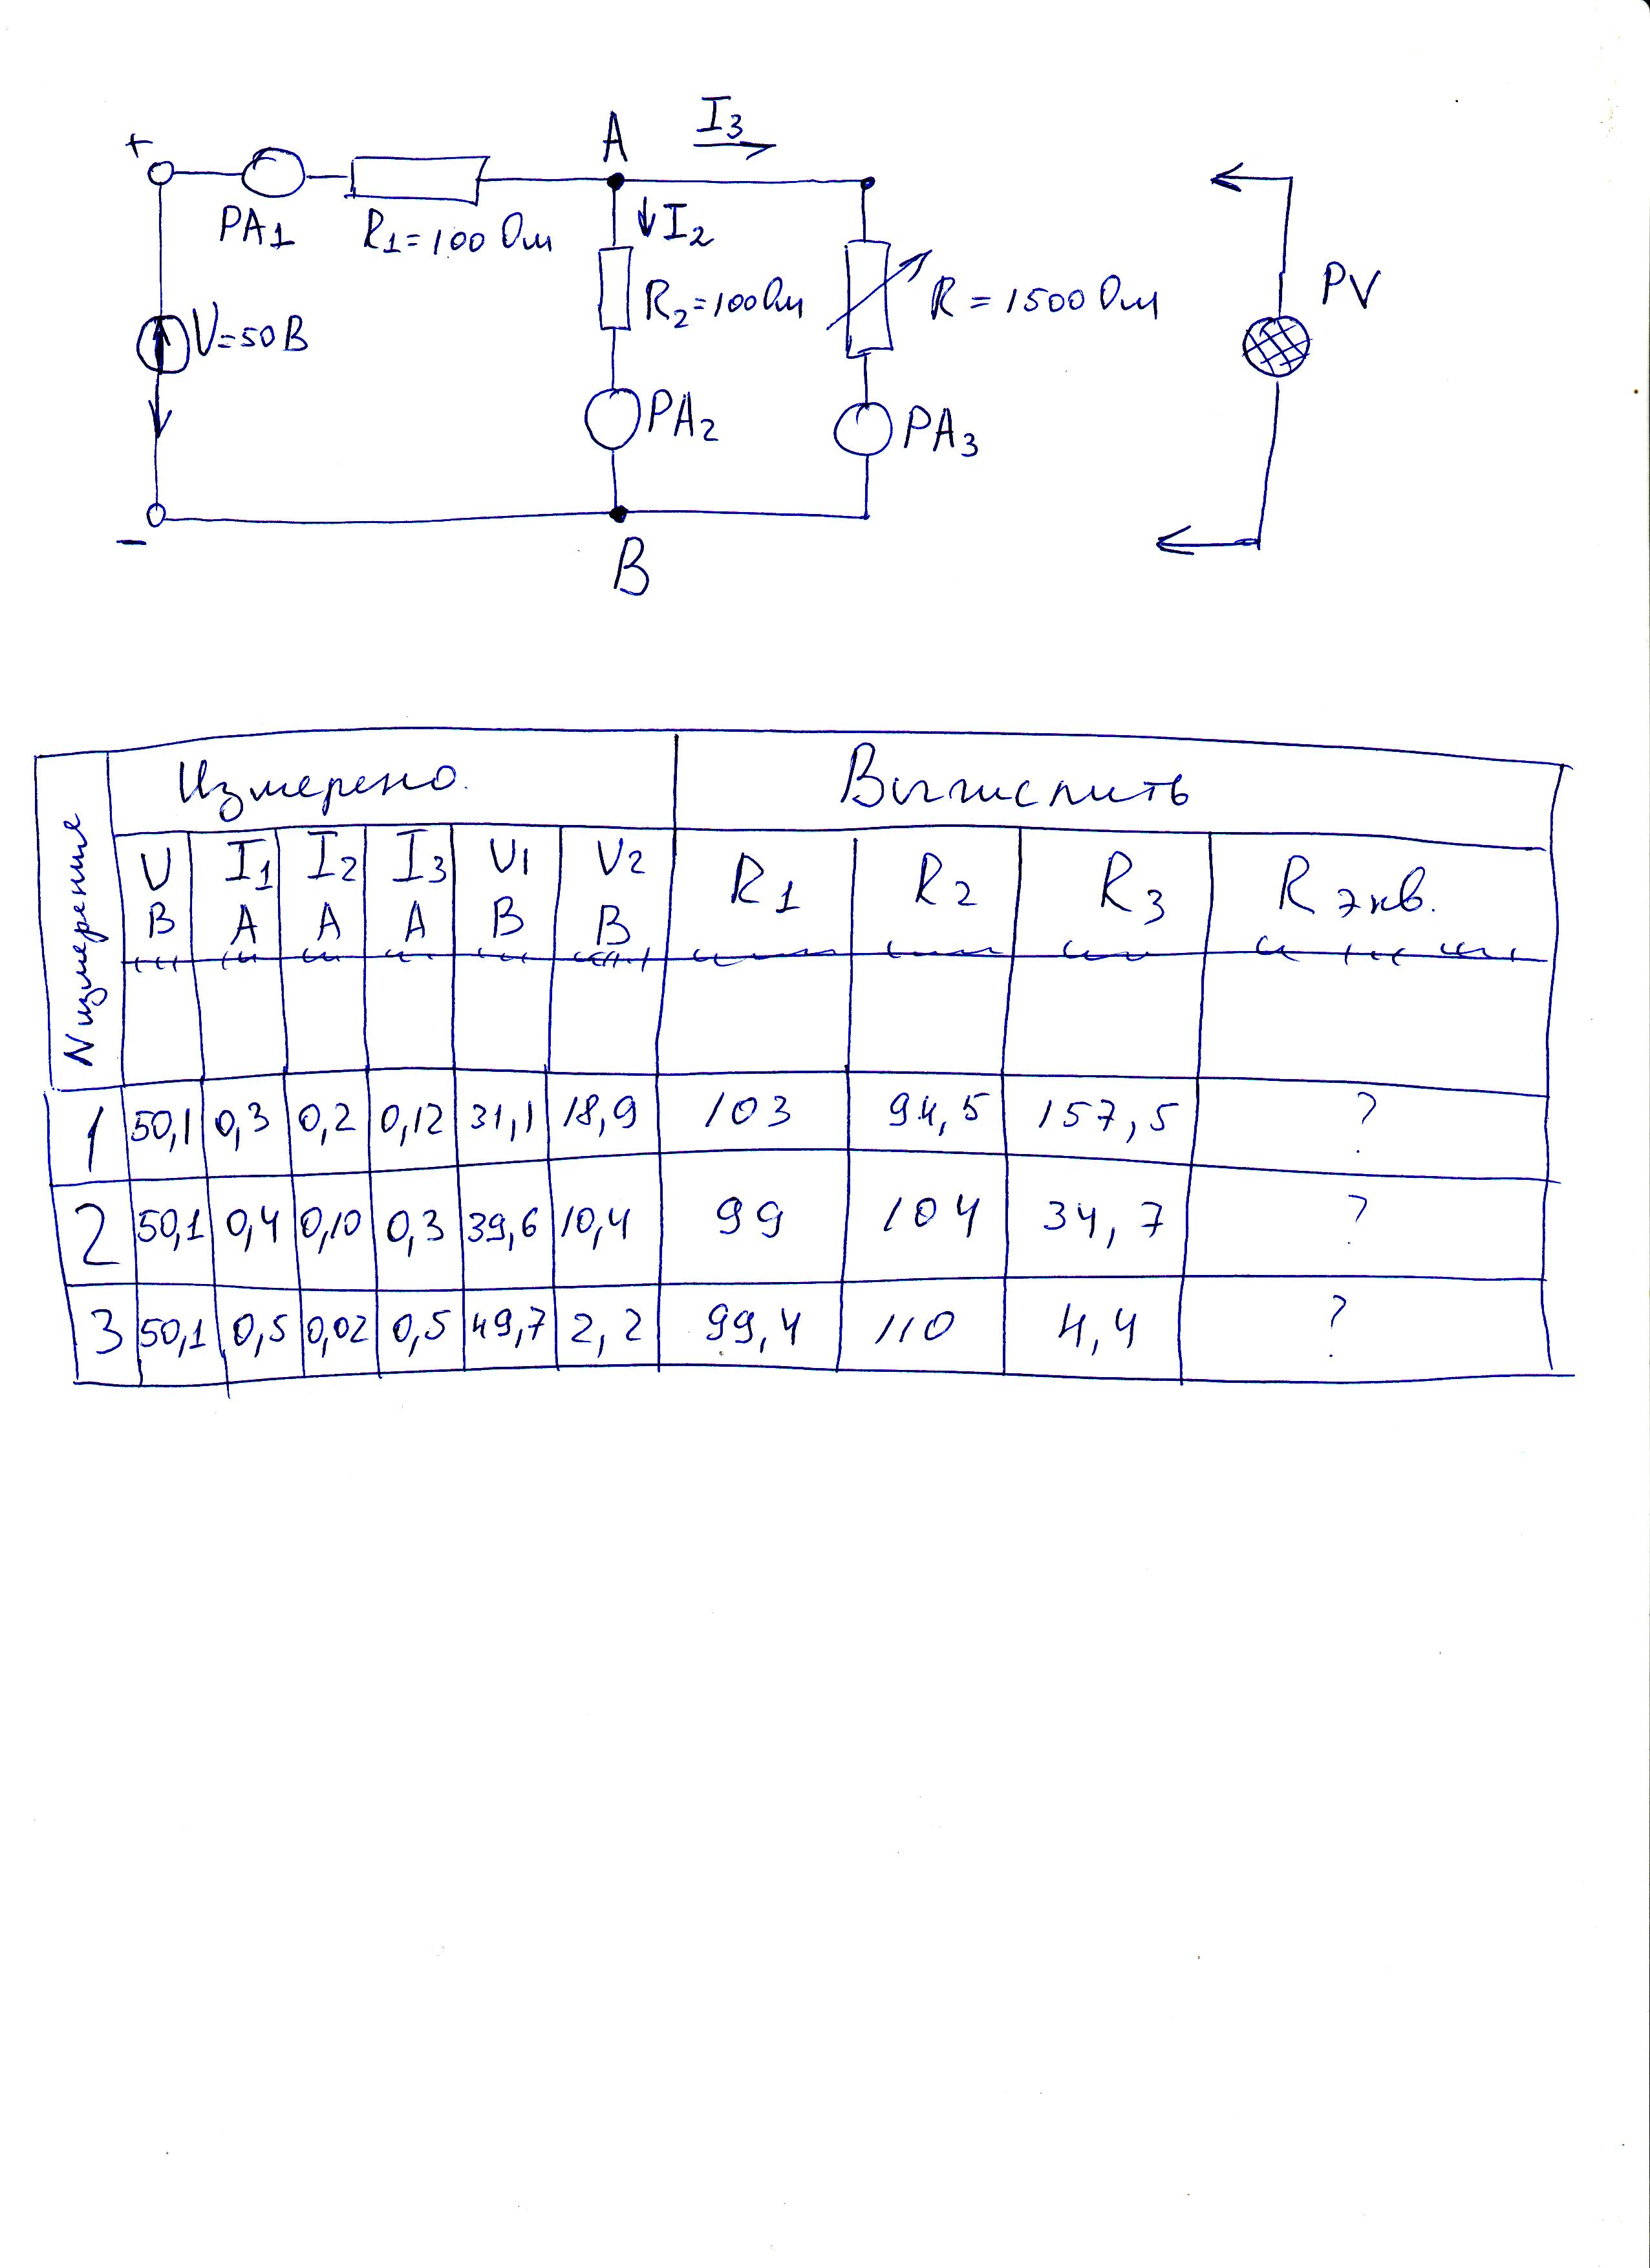 +
A
I3
PA1
R1=100 Ом
I2
R2=100 Ом
R=1500 Ом
PV
U=50В
PA2
PA3
−
B
N измерение
Измерено.
Вычислить
U В
I1 А
I2 А
I3 А
U1 В
U2 В
R1
R2
R3
Rэкв.
1 50,1 0,3 0,2 0,12 31,1 18,9 103 94,5 157,5 ?
2 50,1 0,4 0,10 0,3 39,6 10,4 99 104 34,7 ?
3 50,1 0,5 0,02 0,5 49,7 2,2 99,4 110 4,4 ?